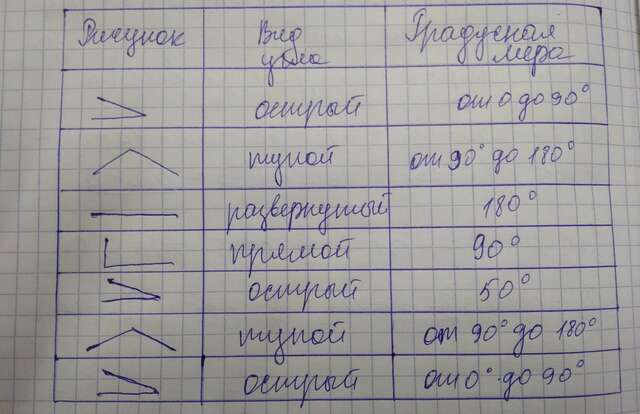 Рисунок Вид Градусная
угла мера
острый от 0 до 90°
тупой от 90° до 180°
развернутый 180°
прямой 90°
острый 50°
тупой от 90° до 180°
острый от 0° до 90°